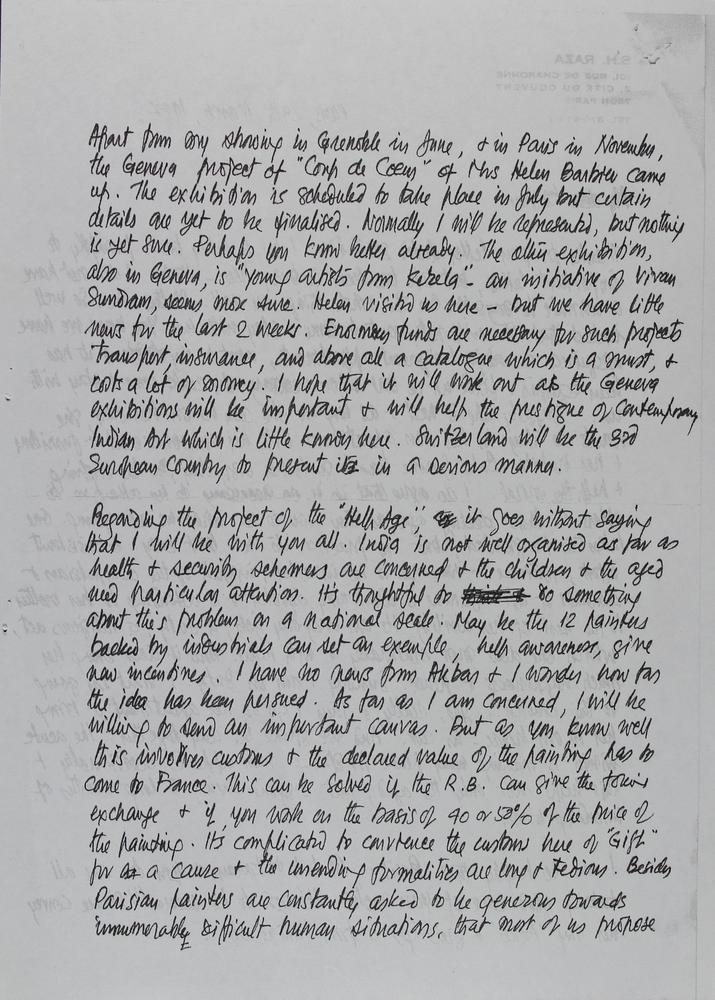 Apart from my showing in Grenoble in June, & in Paris in November,
the Geneva project of "Coup de Coeur" of Mrs Helen Barbier came
up. The exhibition is scheduled to take place in July but certain
details are yet to be finalised. Normally I will be represented, but nothing
is yet sure. Perhaps you know better already. The other exhibition,
also in Geneva, is "young artists from Kerela" - an initiative of Vivan
Sundram, seems more sure. Helen visited us here - but we have little
news for the last 2 weeks. Enormous funds are necessary for such projects
transport, insurance, and above all a catalogue which is a must, &
costs a lot of money. I hope that it will work out as the Geneva
exhibitions will be important & will help the prestigue of Contemporary
Indian Art which is little known here. Switzerland will be the 3rd
European Country to present it in a serious manner.
Regarding the project of the "Help Age", it goes without saying
that I will be with you all. India is not well organised as far as
health & security schemers are concerned & the children & the aged
need particular attention. It's thoughtful to do something
about this problem on a national scale. May be the 12 painters
backed by industrials can set an exemple, help awareness, give
new incentives. I have no news from Akbar & I wonder how far
the idea has been persued. As far as I am concerned, I will be
willing to send an important canvas. But as you know well
this involves customs & the declared value of the painting has to
come to France. This can be solved if the R.B. can give the
exchange & if you work on the basis of 40 or 50% of the price of
the painting. It's complicated to convience the customs here of "Gift"
for a cause & the unending formalities are long & tedious. Besides
Parisian painters are constantly asked to be generous towards
innumerable difficult human situations, that most of us propose
S.H. RAZA
101, RUE DE CHARONNE
2, CITE DU COUVENT
75011 PARIS